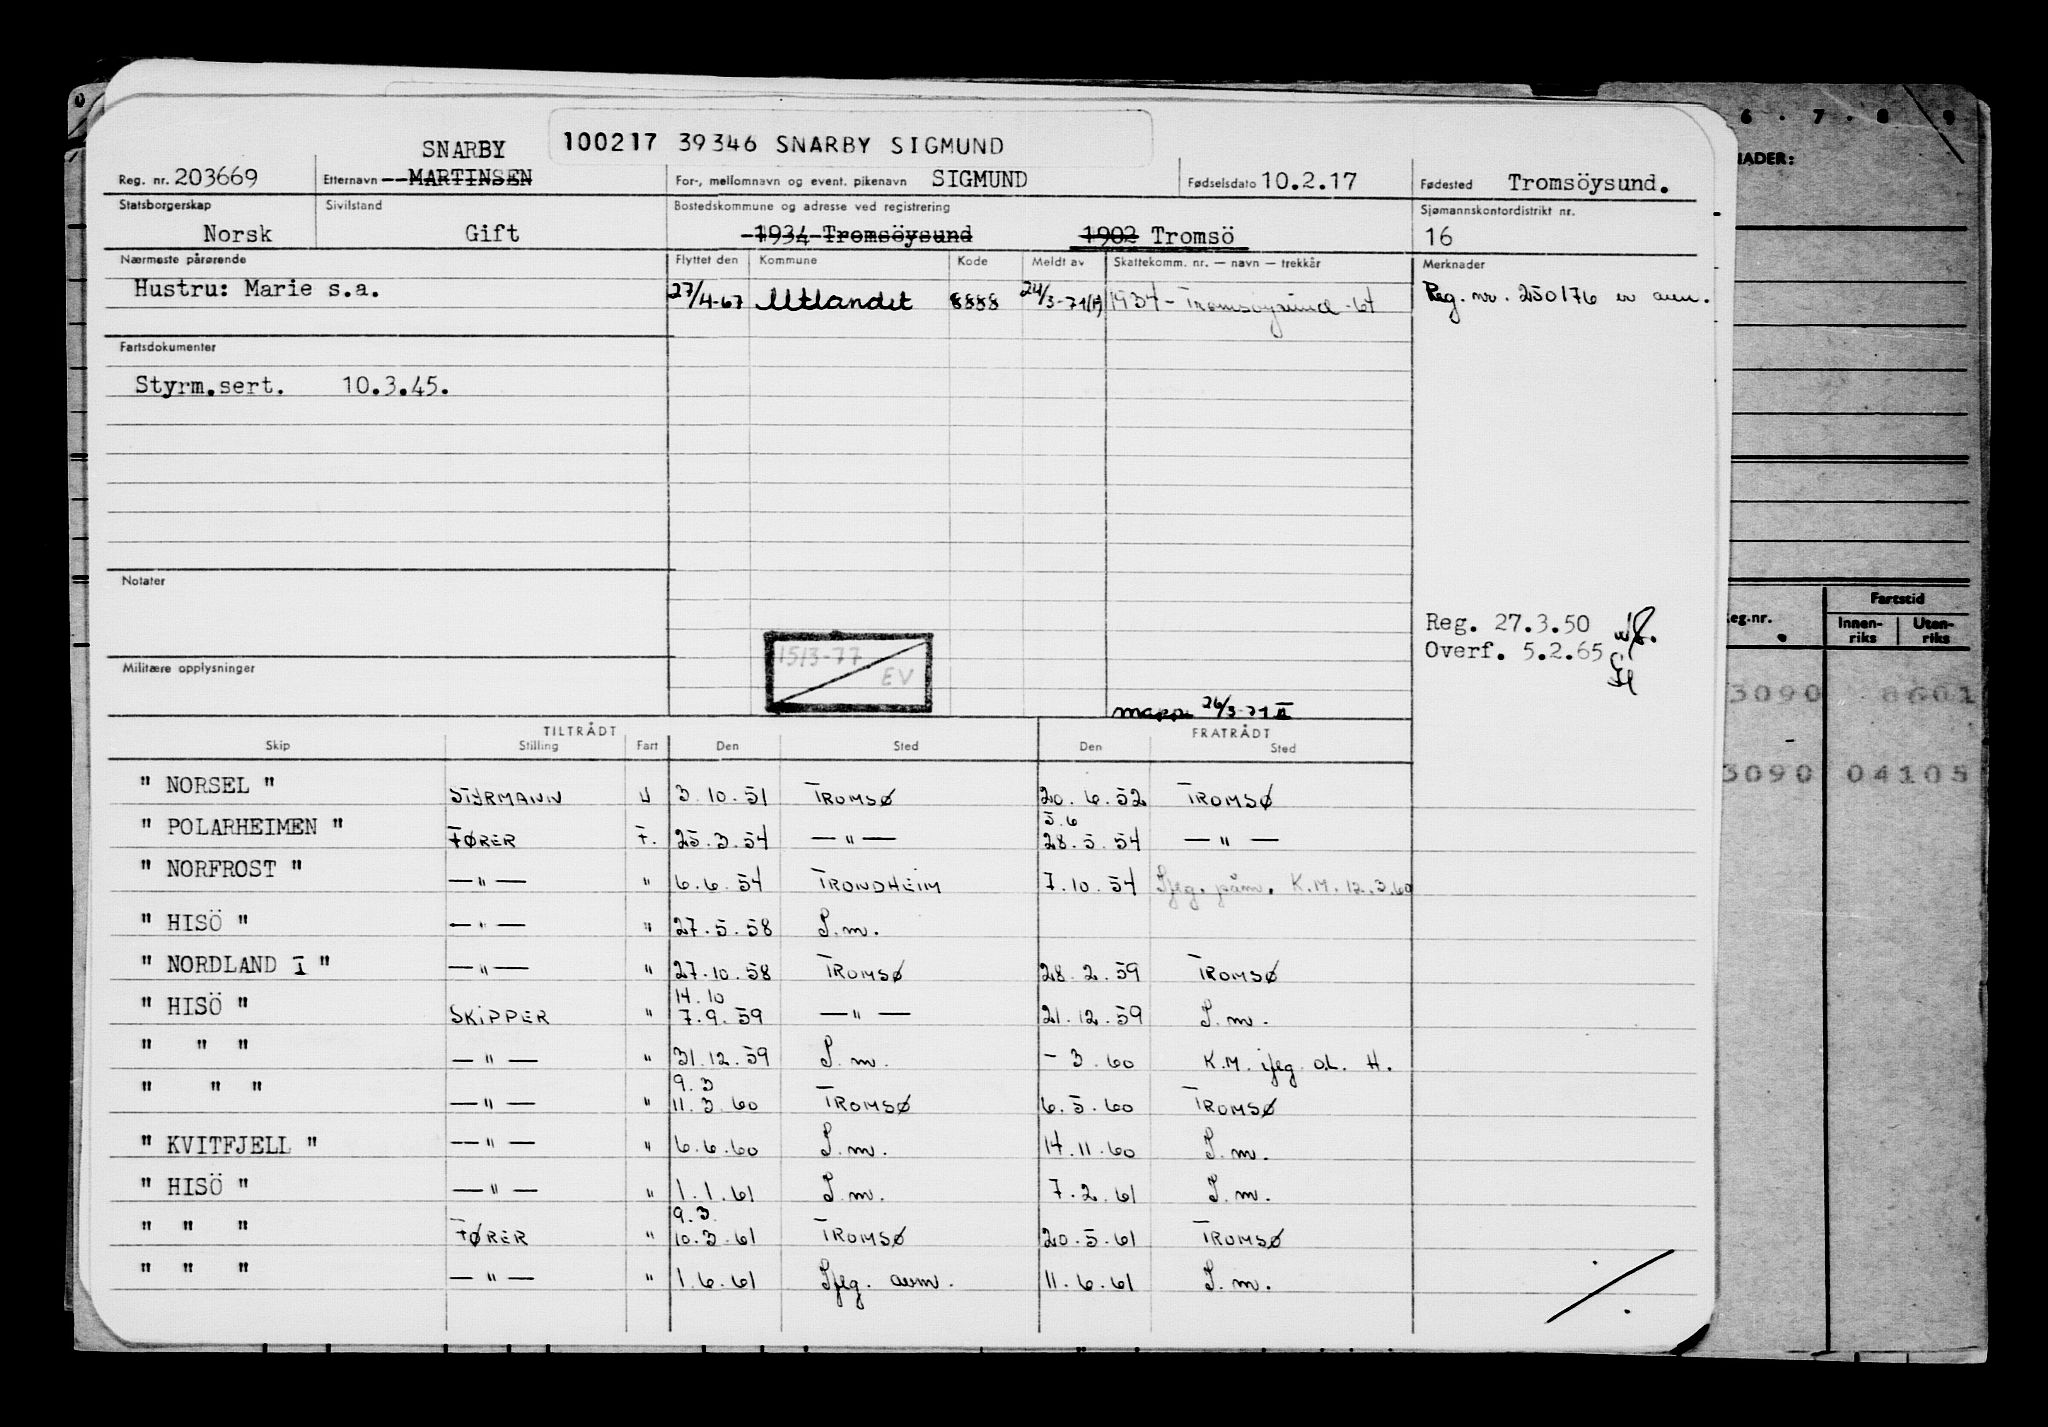 100217 39346 SNARBY SIGMUND
SNARBY
Reg. nr. 203669 Etternavn MARTINSEN For-, mellomnavn og event. pikenavn SIGMUND Fødselsdato 10.2.17 Fødested Tromsöysund.
Statsborgerskap Sivilstand Bostedskommune og adresse ved registrering Sjømannskontordistrikt nr.
Norsk Gift 1934 Tromsöysund 1902 Tromsö 16
Nærmeste pårørende Flyttet den Kommune Kode Meldt av Skattekomm. nr. — navn — trekkår Merknader
Hustru: Marie s.a. 27/4-67 Utlandet 8888 24/3-71 1934 - Tromsøysund -64 Reg. nr. 250176 er ann.
Fartsdokumenter
Styrm.sert. 10.3.45.
Notater
Reg. 27.3.50
Overf. 5.2.65
Militære opplysninger
15/3-77
EV
mappe 26/3-71 II
TILTRÅDT FRATRÅDT
Skip Stilling Fart Den Sted Den Sted
" NORSEL " STYRMANN U 3.10.51 TROMSØ 20.6.52 TROMSØ
5.6
" POLARHEIMEN " FØRER F. 25.3.54 — " — 28.5.54 — " —
" NORFROST " — " — " 6.6.54 TRONDHEIM 7.10.54 Ifflg. påm. K.M. 12.3.60
" HISÖ " — " — " 27.5.58 S.m.
" NORDLAND I " — " — " 27.10.58 TROMSØ 28.2.59 TROMSØ
14.10
" HISÖ " SKIPPER " 7.9.59 — " — 21.12.59 S.m.
" " " — " — " 31.12.59 S.m. - 3.60 K.M. ifflg. o.L. H.
9.3
" " " — " — " 11.3.60 TROMSØ 6.5.60 TROMSØ
" KVITFJELL " — " — " 6.6.60 S.m. 14.11.60 S.m.
" HISÖ " — " — " 1.1.61 S.m. 7.2.61 S.m.
9.3.
" " " FØRER " 10.3.61 TROMSØ 20.5.61 TROMSØ
" " " — " — " 1.6.61 Ifflg. avm. 11.6.61 S.m.
6 . 7 . 8 . 9
NADER:
eg.nr. Fartstid
Innen-riks Uten-riks
3090 8601
3090 04105